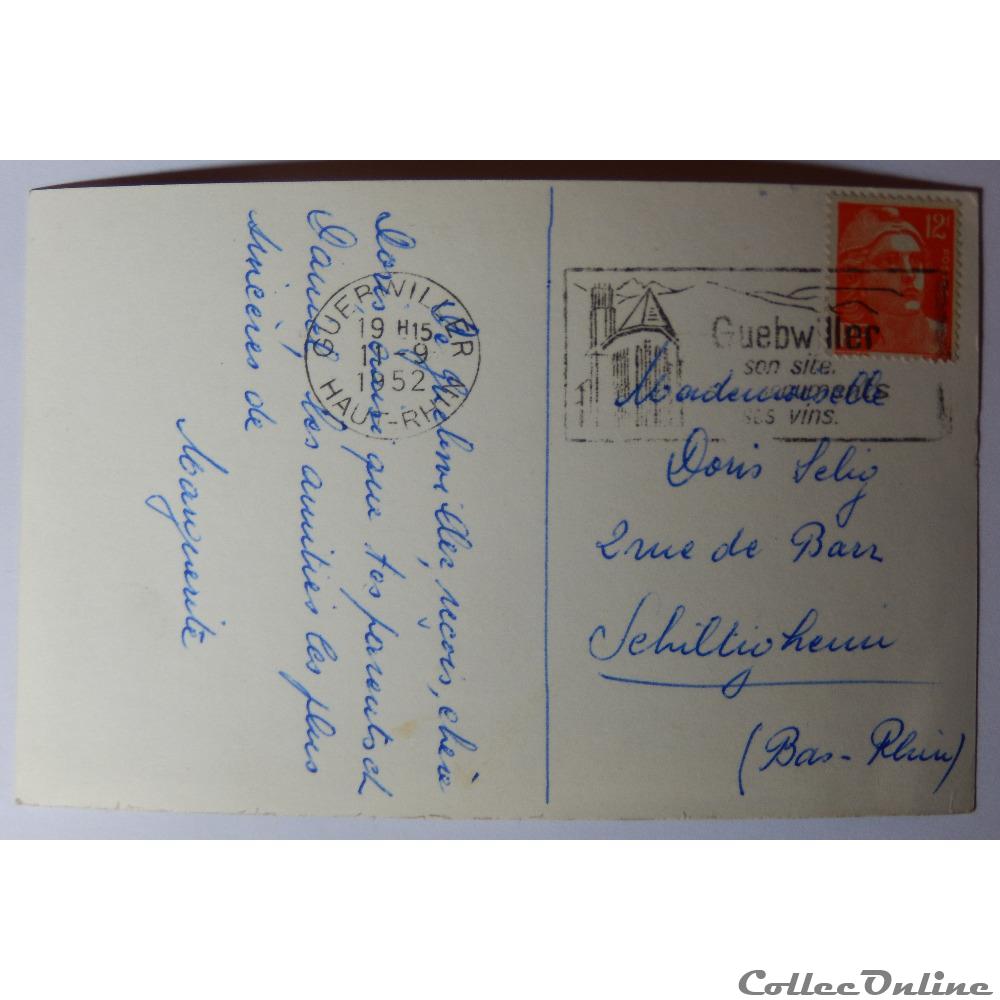 De Guebwiller, reçois, chère
Doris, ainsi que tes parents et
Daniel, mes amitiés les plus
sincères de
Marguerite
GUEBWILLER
19 H15
11-9
1952
HAUT-RHIN
Guebwiller
son site.
ses monuments
ses vins.
12F
Mademoiselle
Doris Selig
2 rue de Barr
Schiltigheim
(Bas-Rhin)
CollecOnline